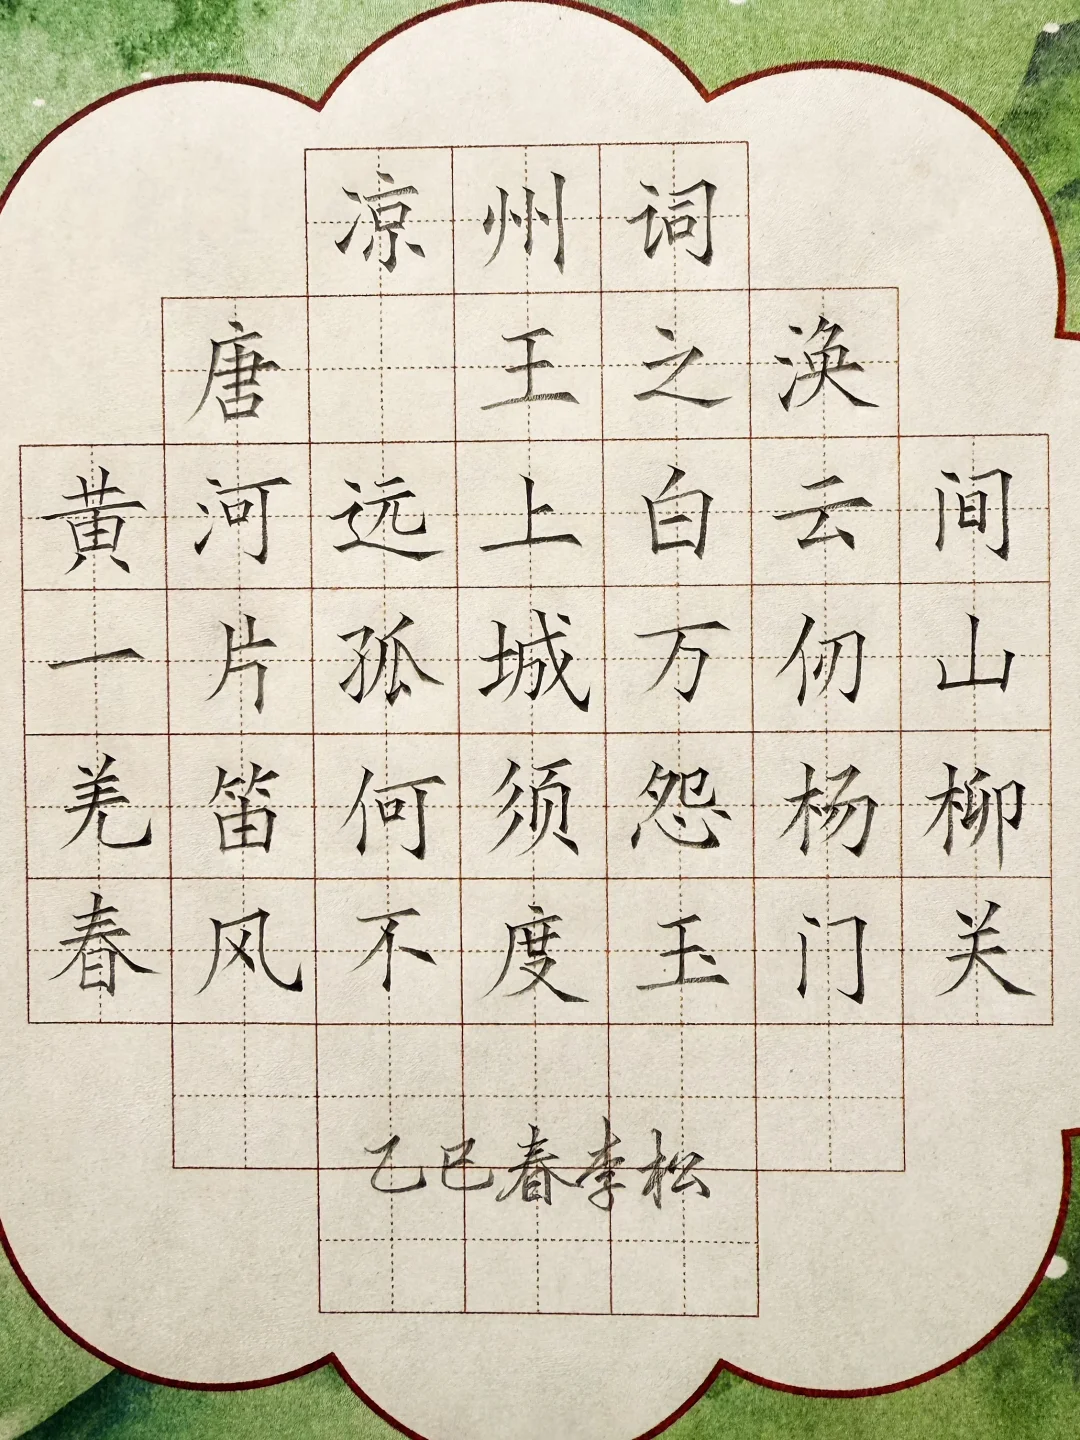 凉州词
唐 王之涣
黄河远上白云间
一片孤城万仞山
羌笛何须怨杨柳
春风不度玉门关
乙巳春李松